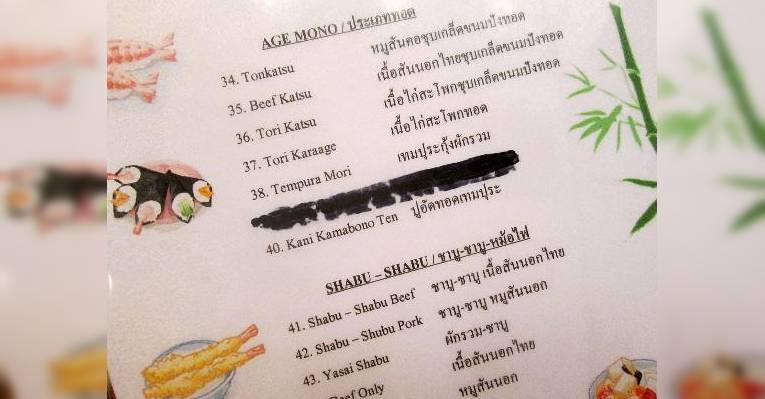 AGE MONO / ประเภททอด
34. Tonkatsu หมูสันคอชุบเกล็ดขนมปังทอด
35. Beef Katsu เนื้อสันนอกไทยชุบเกล็ดขนมปังทอด
36. Tori Katsu เนื้อไก่สะโพกชุบเกล็ดขนมปังทอด
37. Tori Karaage เนื้อไก่สะโพกทอด
38. Tempura Mori เทมปุระกุ้งผักรวม
40. Kani Kamabono Ten ปูอัดทอดเทมปุระ
SHABU – SHABU / ชาบู-ชาบู-หม้อไฟ
41. Shabu – Shabu Beef ชาบู-ชาบู เนื้อสันนอกไทย
42. Shabu – Shubu Pork ชาบู-ชาบู หมูสันนอก
43. Yasai Shabu ผักรวม-ชาบู
Beef Only เนื้อสันนอกไทย
หมูสันนอก